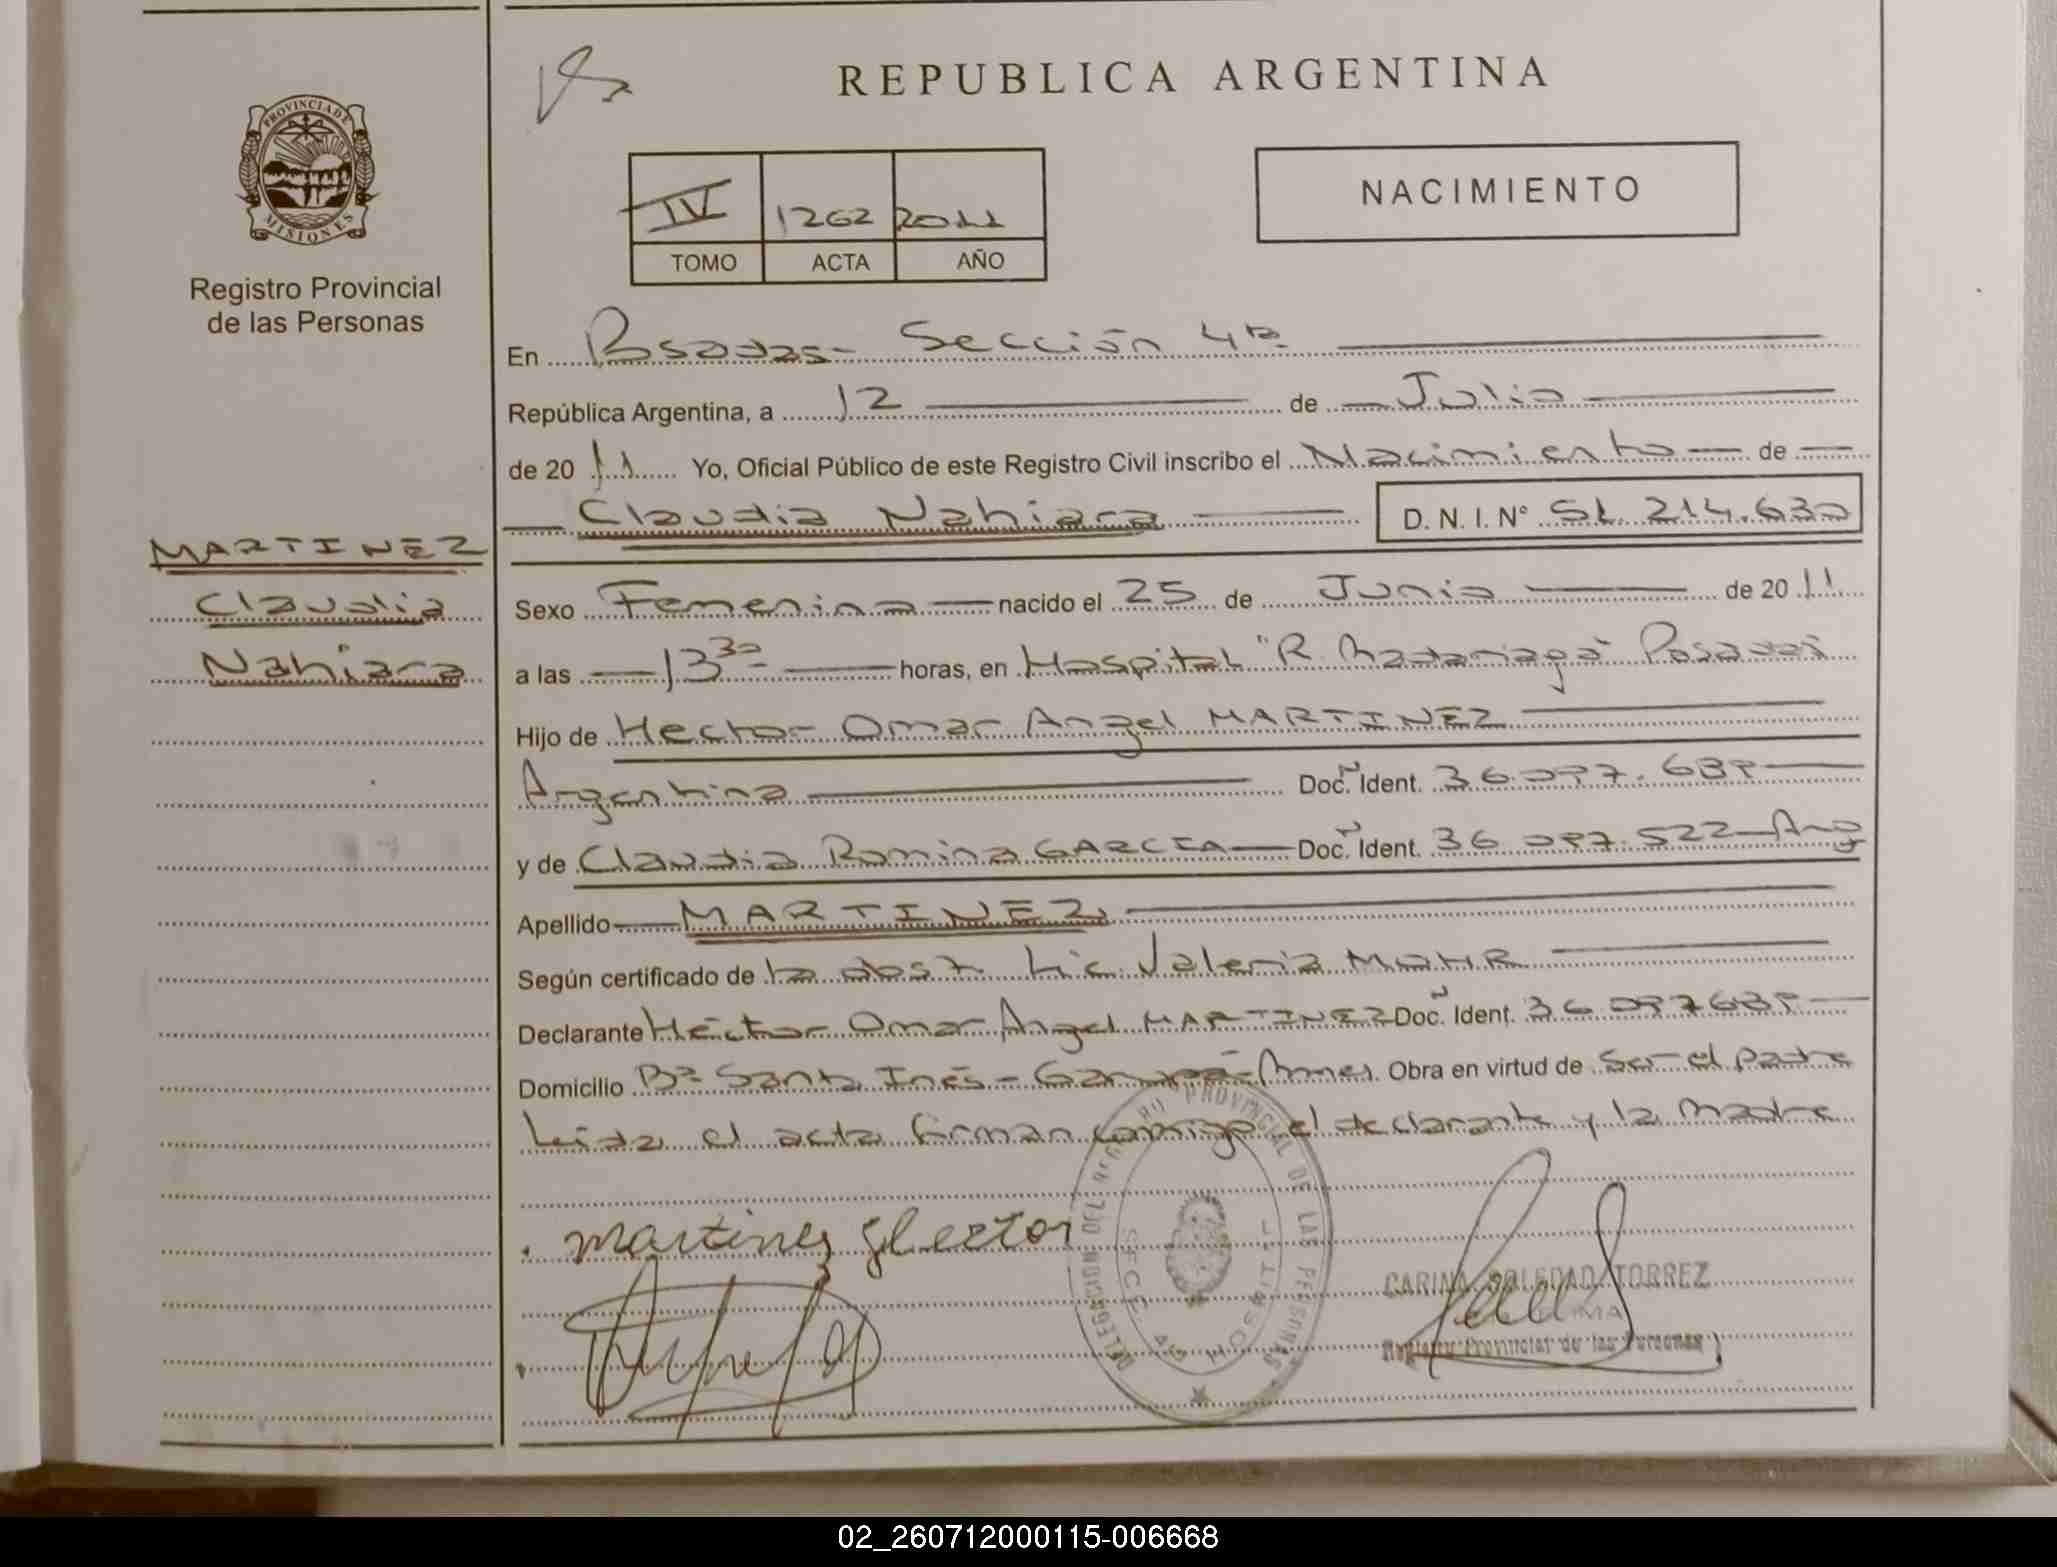 REPUBLICA ARGENTINA
PROVINCIA DE
MISIONES
Registro Provincial
de las Personas
NACIMIENTO
IV 1262 2011
TOMO ACTA AÑO
En Posadas - Sección 4ta
República Argentina, a 12 de Julio
de 2011 Yo, Oficial Público de este Registro Civil inscribo el Nacimiento de
Claudia Nahiara D. N. I. N° 51.214.630
MARTINEZ
Claudia
Nahiara
Sexo Femenino nacido el 25 de Junio de 2011
a las 13 30 horas, en Hospital "R. Madariaga" Posadas
Hijo de Hector Omar Angel MARTINEZ
Argentina Doc. Ident. 36.097.689
y de Claudia Romina GARCIA Doc. Ident. 36.097.522 Arg
Apellido MARTINEZ
Según certificado de la obst. Lic. Valeria MOHR
Declarante Héctor Omar Ángel MARTINEZ Doc. Ident. 36.097689
Domicilio Bº Santa Inés - Garupá - Mnes. Obra en virtud de ser el padre
Leida el acta firman conmigo el declarante y la madre
DELEGACION DEL REGISTRO PROVINCIAL DE LAS PERSONAS
martinez Hector
CARINA SOLEDAD TORREZ
Registro Provincial de las Personas
02_260712000115-006668